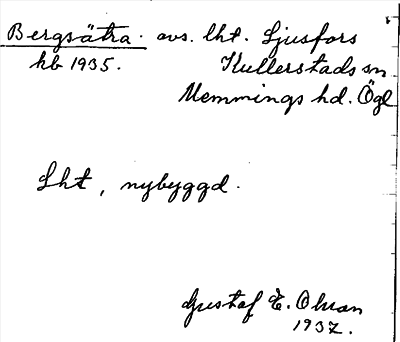 Bergsätra. avs. lht. Ljusfors
hb 1935. Kullerstads sn
Memmings hd. Ögl
Lht, nybyggd.
Gustaf E. Ohson
1937.